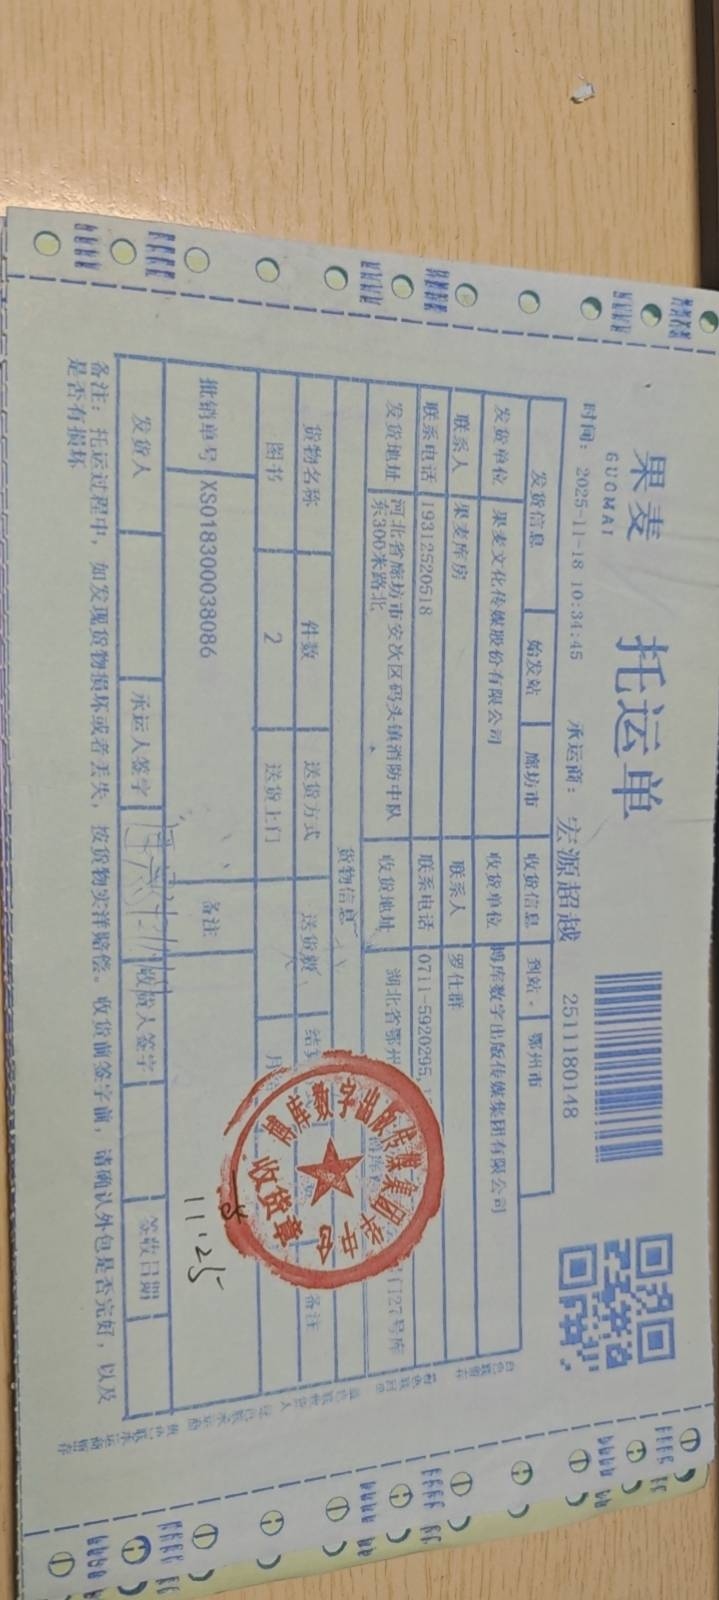 果麦
GUOMAI
托运单
时间: 2025-11-18 10:34:45 承运商: 宏源超越 2511180148
发货信息 始发站 廊坊市 收货信息 到站 鄂州市
发货单位 果麦文化传媒股份有限公司 收货单位 博库数字出版传媒集团有限公司
联系人 果麦库房 联系人 罗仕群
联系电话 19312520518 联系电话 0711-5920295,
发货地址 河北省廊坊市安次区码头镇消防中队东300米路北 收货地址 湖北省鄂州 门127号库
货物信息
货物名称 件数 送货方式 送货费 结算 备注
图书 2 送货上门 月
批销单号 XS018300038086 备注
发货人 承运人签字 收货人签字 签收日期
备注: 托运过程中, 如发现货物损坏或者丢失, 按货物实洋赔偿。收货前签字前, 请确认外包是否完好, 以及
是否有损坏
博库数字出版传媒集团
华中仓
收货章
11.25